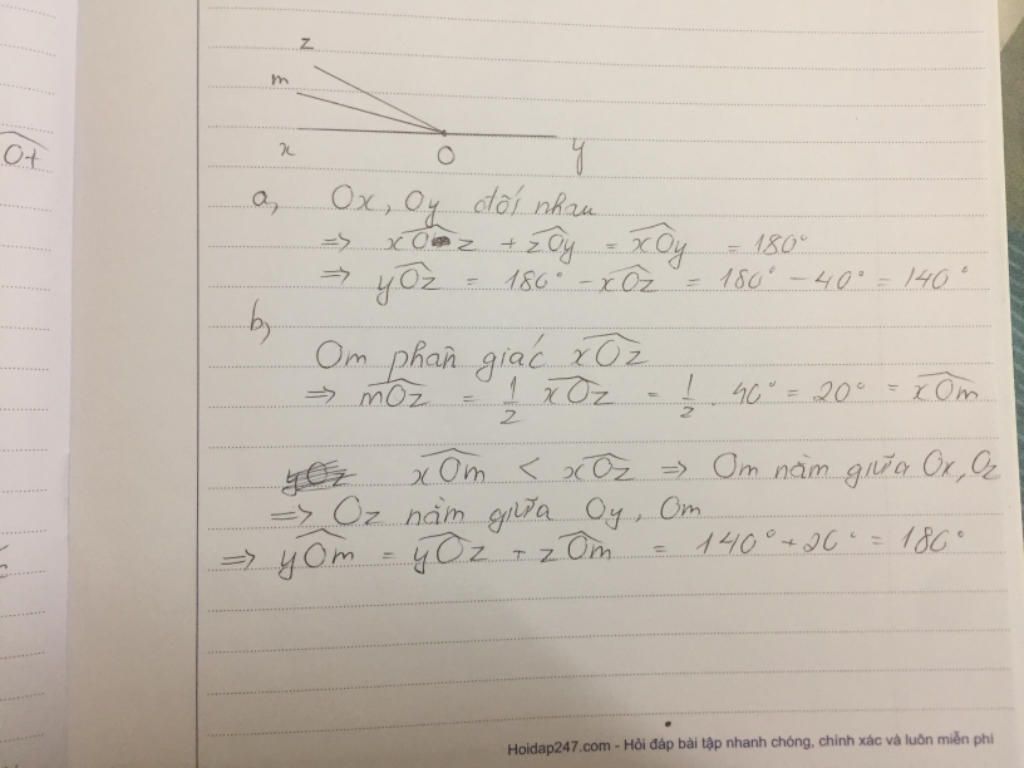 Ot
z
m
x
O
y
a, Ox, Oy đối nhau
=> xOz + zOy = xOy = 180°
=> yOz = 180° - xOz = 180° - 40° = 140°
b,
Om phân giác xOz
=> mOz = 1/2 xOz = 1/2 . 40° = 20° = xOm
xOm < xOz => Om nằm giữa Ox, Oz
=> Oz nằm giữa Oy, Om
=> yOm = yOz + zOm = 140° + 20° = 180°
Hoidap247.com - Hỏi đáp bài tập nhanh chóng, chính xác và luôn miễn phí